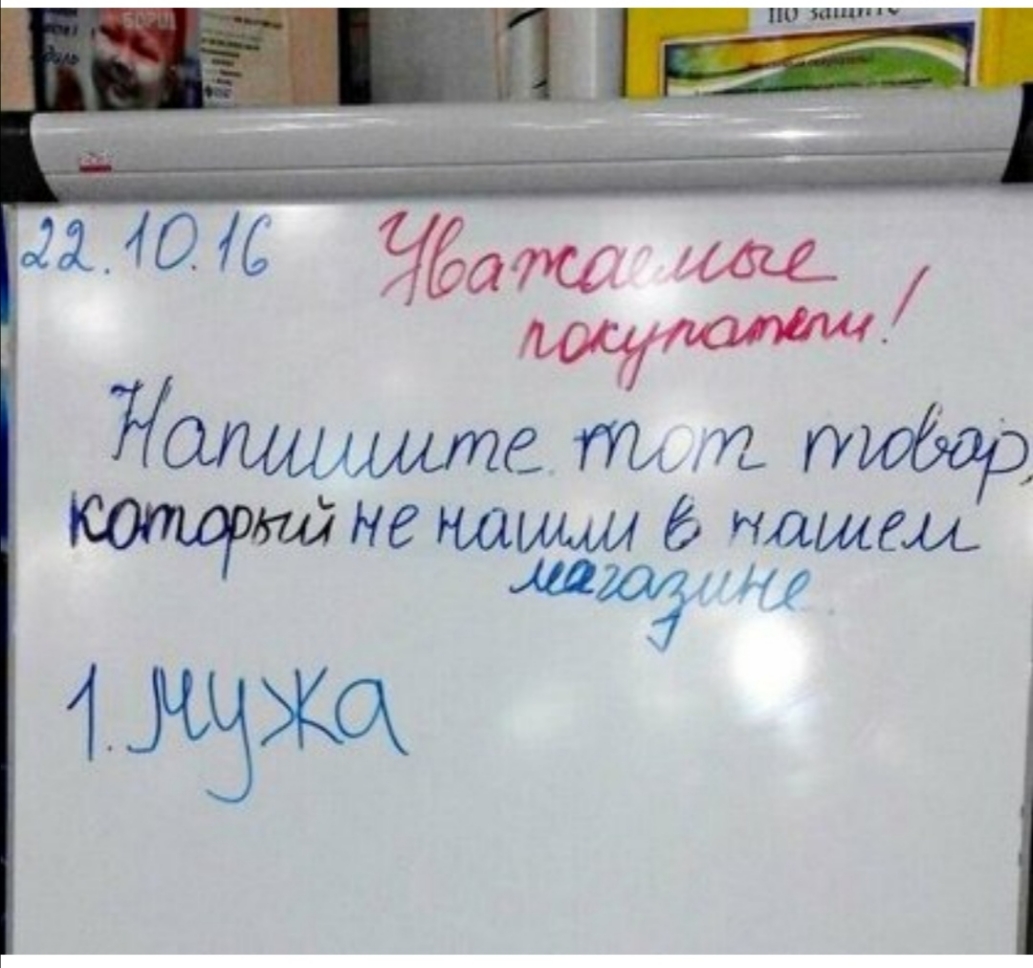 БОРЩ
ПО ЗАЩИТЕ
22.10.16
Уважаемые
покупатели!
Напишите тот товар,
который не нашли в нашем
магазине
1. Мужа